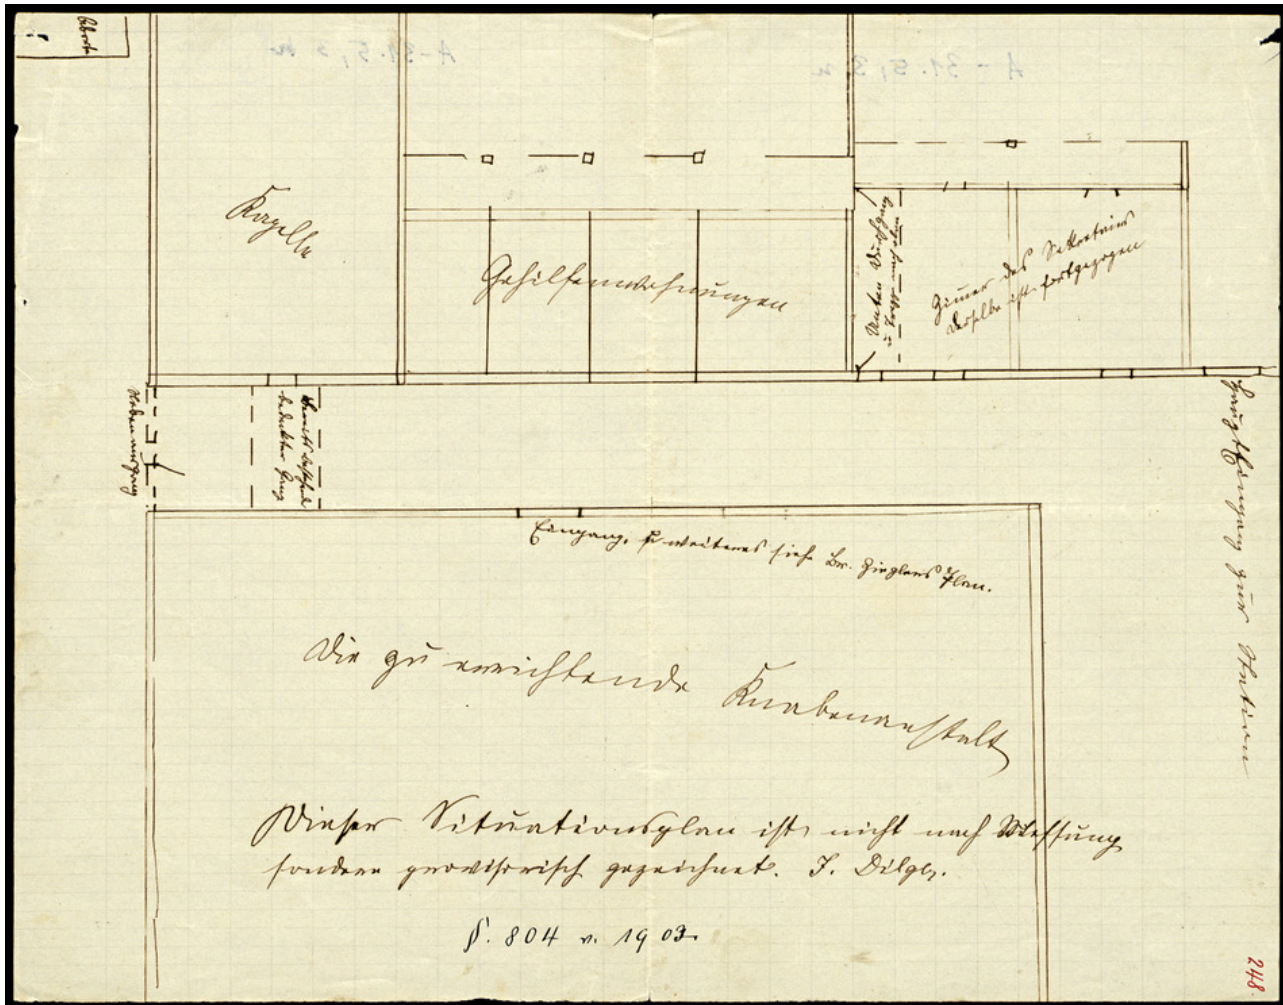 Aborte
A-31.5,3 n
A-31.5,3 n
Kapelle
Gehilfenwohnungen
Unten Durchgang
Zimmer des Sekretairs
derselbe ist fortgezogen
Nebeneingang
bedeckter Gang
Haupteingang zur Station
Eingang, weiteres siehe Br. Zieglers Plan.
Die zu errichtende Knabenanstalt
Dieser Situationsplan ist nicht nach Messung
sondern provisorisch gezeichnet. J. Dilger.
§. 804 v. 1903.
248.